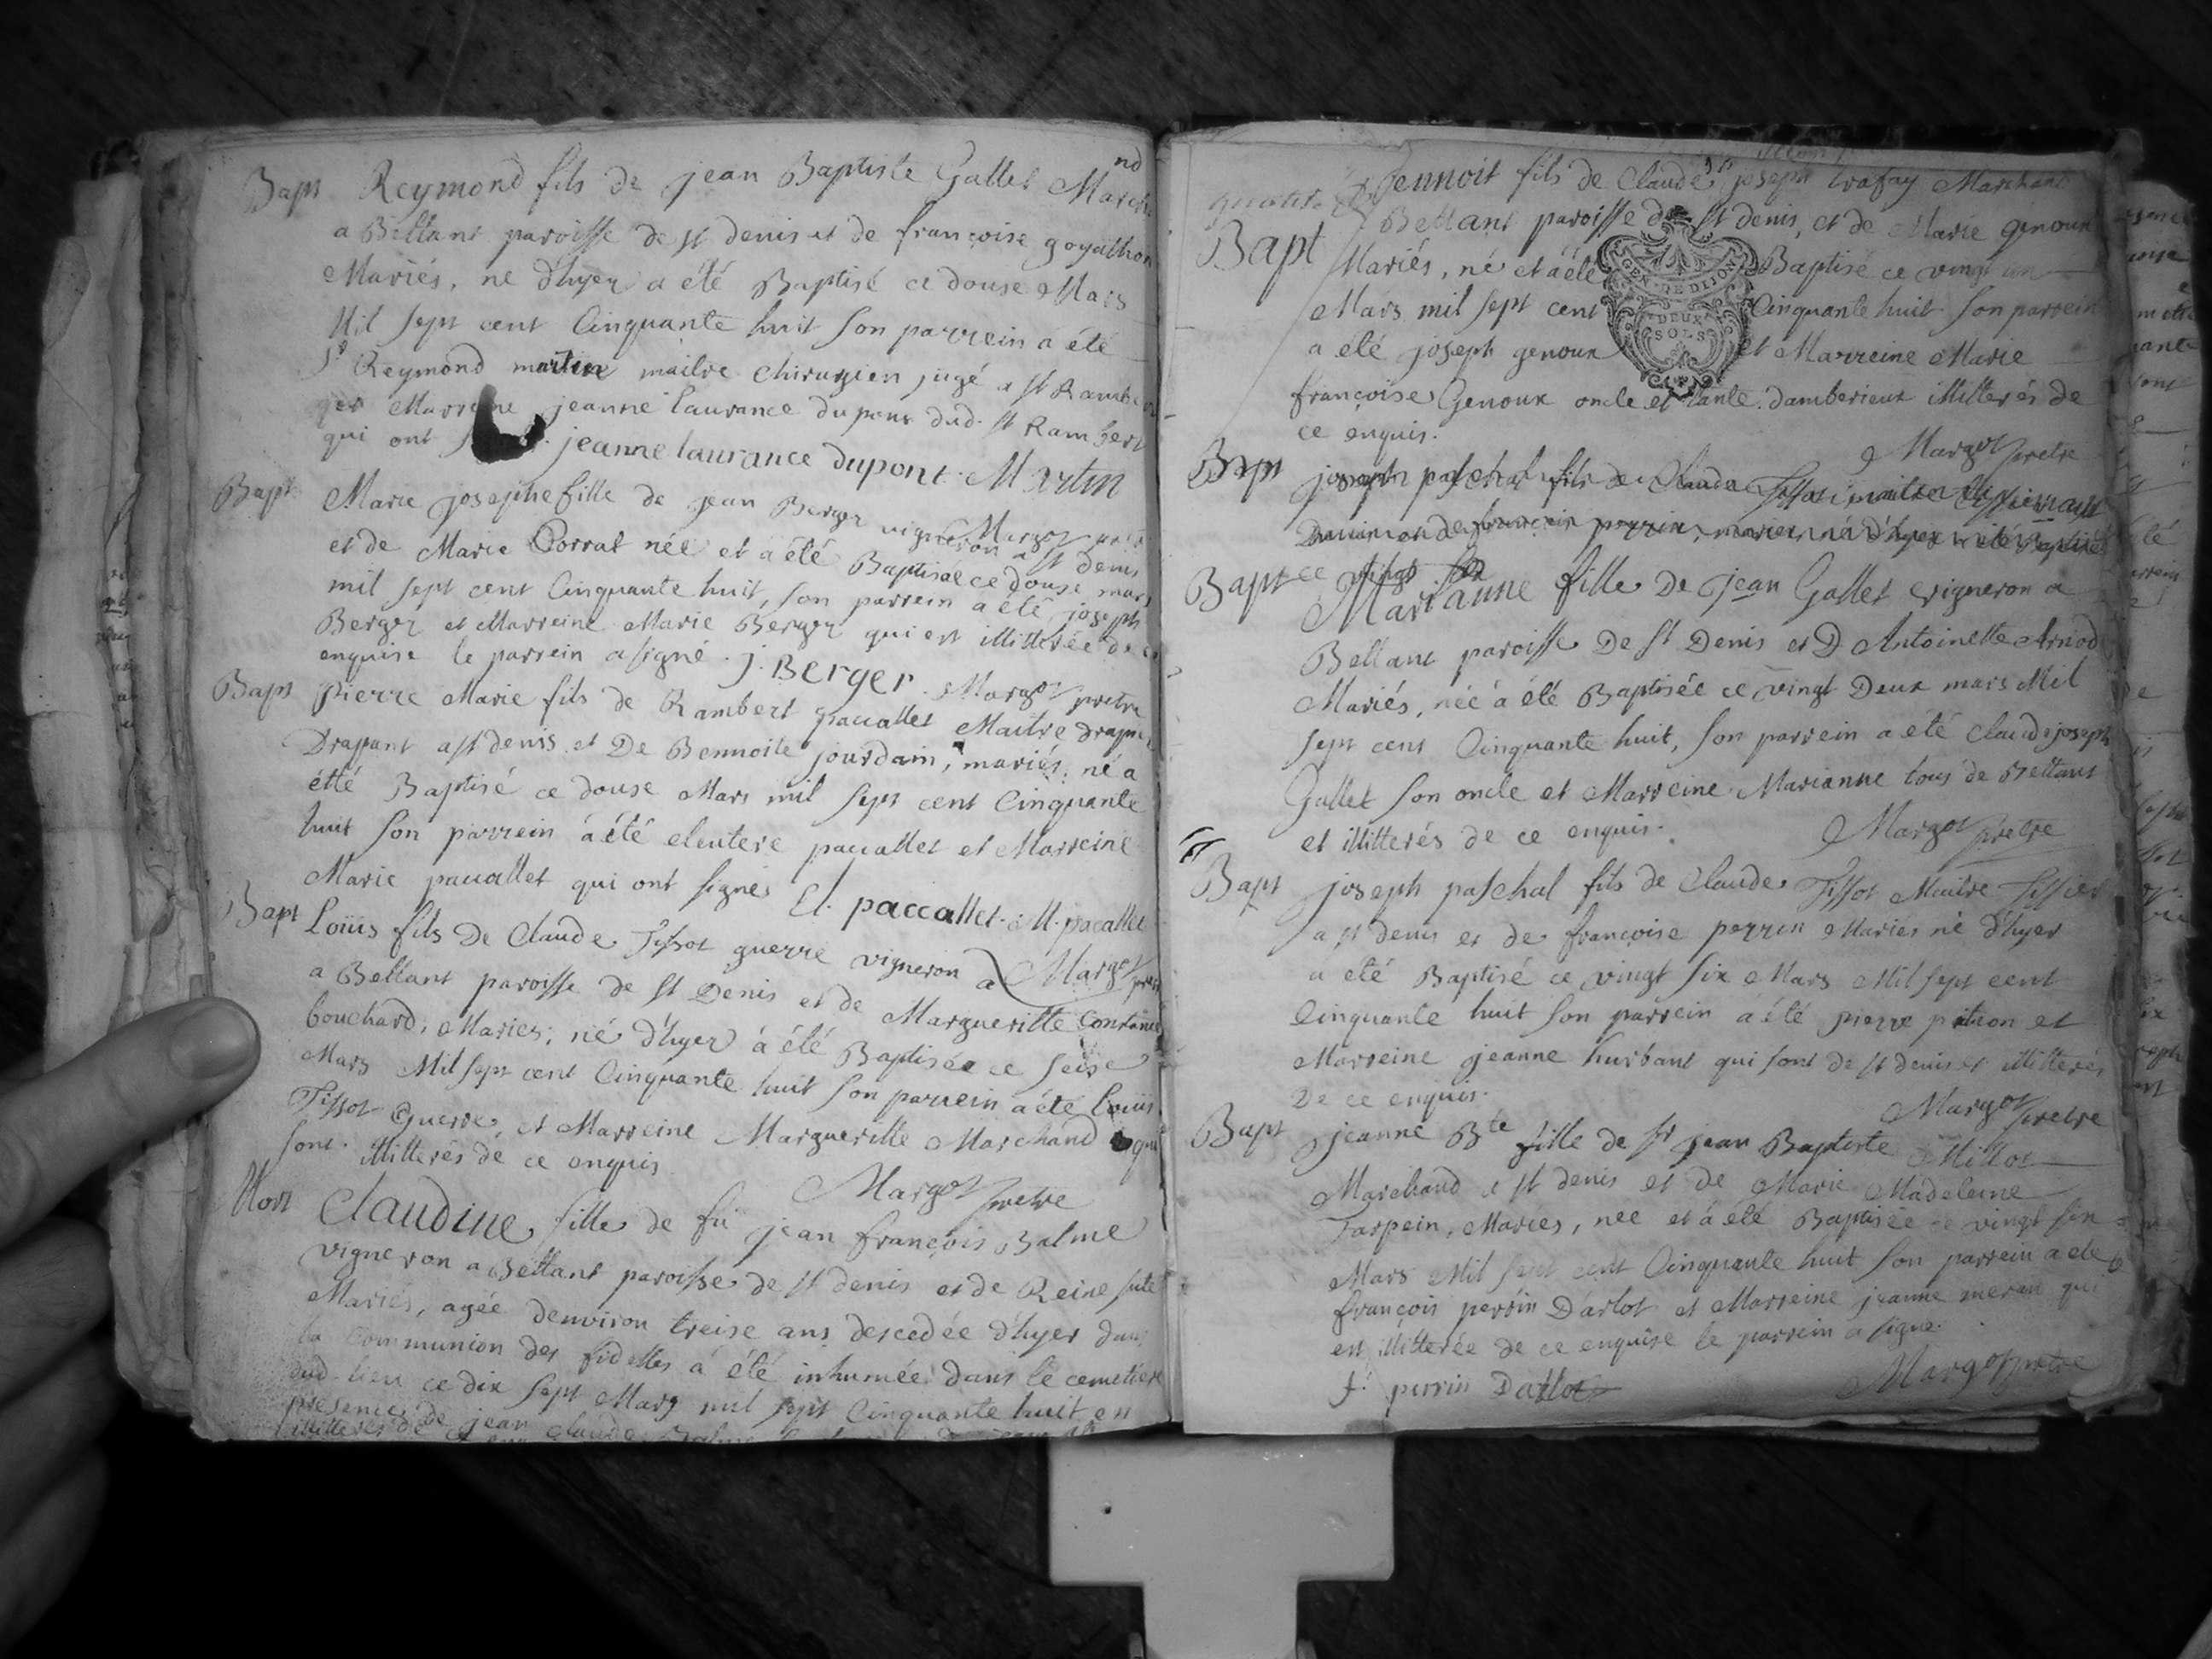 Bapt Reymond fils de jean Baptiste Gallet Marchnd
a Bettant paroisse de st denis et de françoise goyathon
Mariés, ne d'hyer a été Baptisé ce douse Mars
Mil sept cent Cinquante huit son parrein a été
sr Reymond martin maitre chirurgien jugé a st Ramber
Marreine jeanne laurance dupont dud. st Rambert
qui ont jeanne laurance dupont. Martin
Margot
Bapt Marie josephe fille de jean Berger vigneron a st denis
et de Marie Porrat née et a été Baptisée ce douse mars
mil sept cent Cinquante huit, son parrein a été joseph
Berger et Marreine Marie Berger qui est illitterée de ce
enquise le parrein a signé. j. Berger. Margot pretre
Bapt pierre Marie fils de Rambert paccallet Maitre drapier
Drapant a st denis et De Bennoite jourdain, mariés, né a
étté Baptisé ce douse Mars mil sept cent Cinquante
huit son parrein a été eleutere paccallet et Marreine
Marie paccallet qui ont signés El. paccallet. M. pacallet
Margot pretre
Bapt Loüis fils De Claude Tissot guerre vigneron a
a Bettant paroisse de st Denis et de Margueritte Contance
bouchard, Maries, né d'hyer à été Baptisée ce seise
Mars Mil sept cent Cinquante huit son parrein a été loüis
Tissot Guerre, et Marreine Margueritte Marchand qui
sont illitterés de ce enquis
Margot pretre
Mort Claudine fille de fû jean françois Balme
vigneron a Bettant paroisse de st denis et de Reine
Mariés, agée denviron treise ans descedée d'hyer dans
la Communion des fidelles à été inhumée dans le cemetiere
dud. lieu ce dix sept Mars mil sept Cinquante huit en
presence de jean claude Balme
illitterés de
Bennoit fils de Claude joseph trafay Marchand
Bapt a Bettant paroisse de st denis, et de Marie genoux
Mariés, né et a été Baptisé ce vingt un
Mars mil sept cent Cinquante huit son parrein
a été joseph genoux et Marreine Marie
françoise Genoux oncle et tante d'amberieux illitterés de
ce enquis.
Margot pretre
GEN. DE DIJON
DEUX
SOLS
Bapt joseph paschal fils de Claude Tissot maitre
françoise perrin, mariés, né d'hyer a été Baptisé
ce vingt
Bapt Marianne fille De jean Gallet vigneron a
Bettant paroisse De st Denis et D Antoinette Arnod
Mariés, née à été Baptisée ce vingt Deux mars Mil
sept cent Cinquante huit, son parrein a été Claude joseph
Gallet son oncle et Marreine Marianne tous de Bettant
et illitterés de ce enquis.
Margot pretre
Bapt joseph paschal fils de Claude Tissot Maitre Tissier
a st denis et de françoise perrin Mariés né d'hyer
a été Baptisé ce vingt six Mars Mil sept cent
Cinquante huit son parrein a été pierre pition et
Marreine jeanne hurbant qui sont de st denis et illitterés
De ce enquis.
Margot pretre
Bapt jeanne Bte fille de sr jean Baptiste Millot
Marchand a st denis et de Marie Madeleine
Tarpein, Maries, née et à été Baptisée ce vingt six
Mars Mil sept cent Cinquante huit son parrein a eté
françois perrin Darlot et Marreine jeanne meran qui
est illitterée de ce enquise le parrein a signe.
f. perrin Darlot Margot pretre